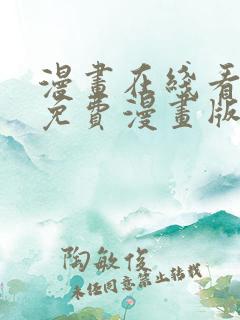 漫畫在綫看
免費漫畫版
陶敏俊
未经同意禁止转载